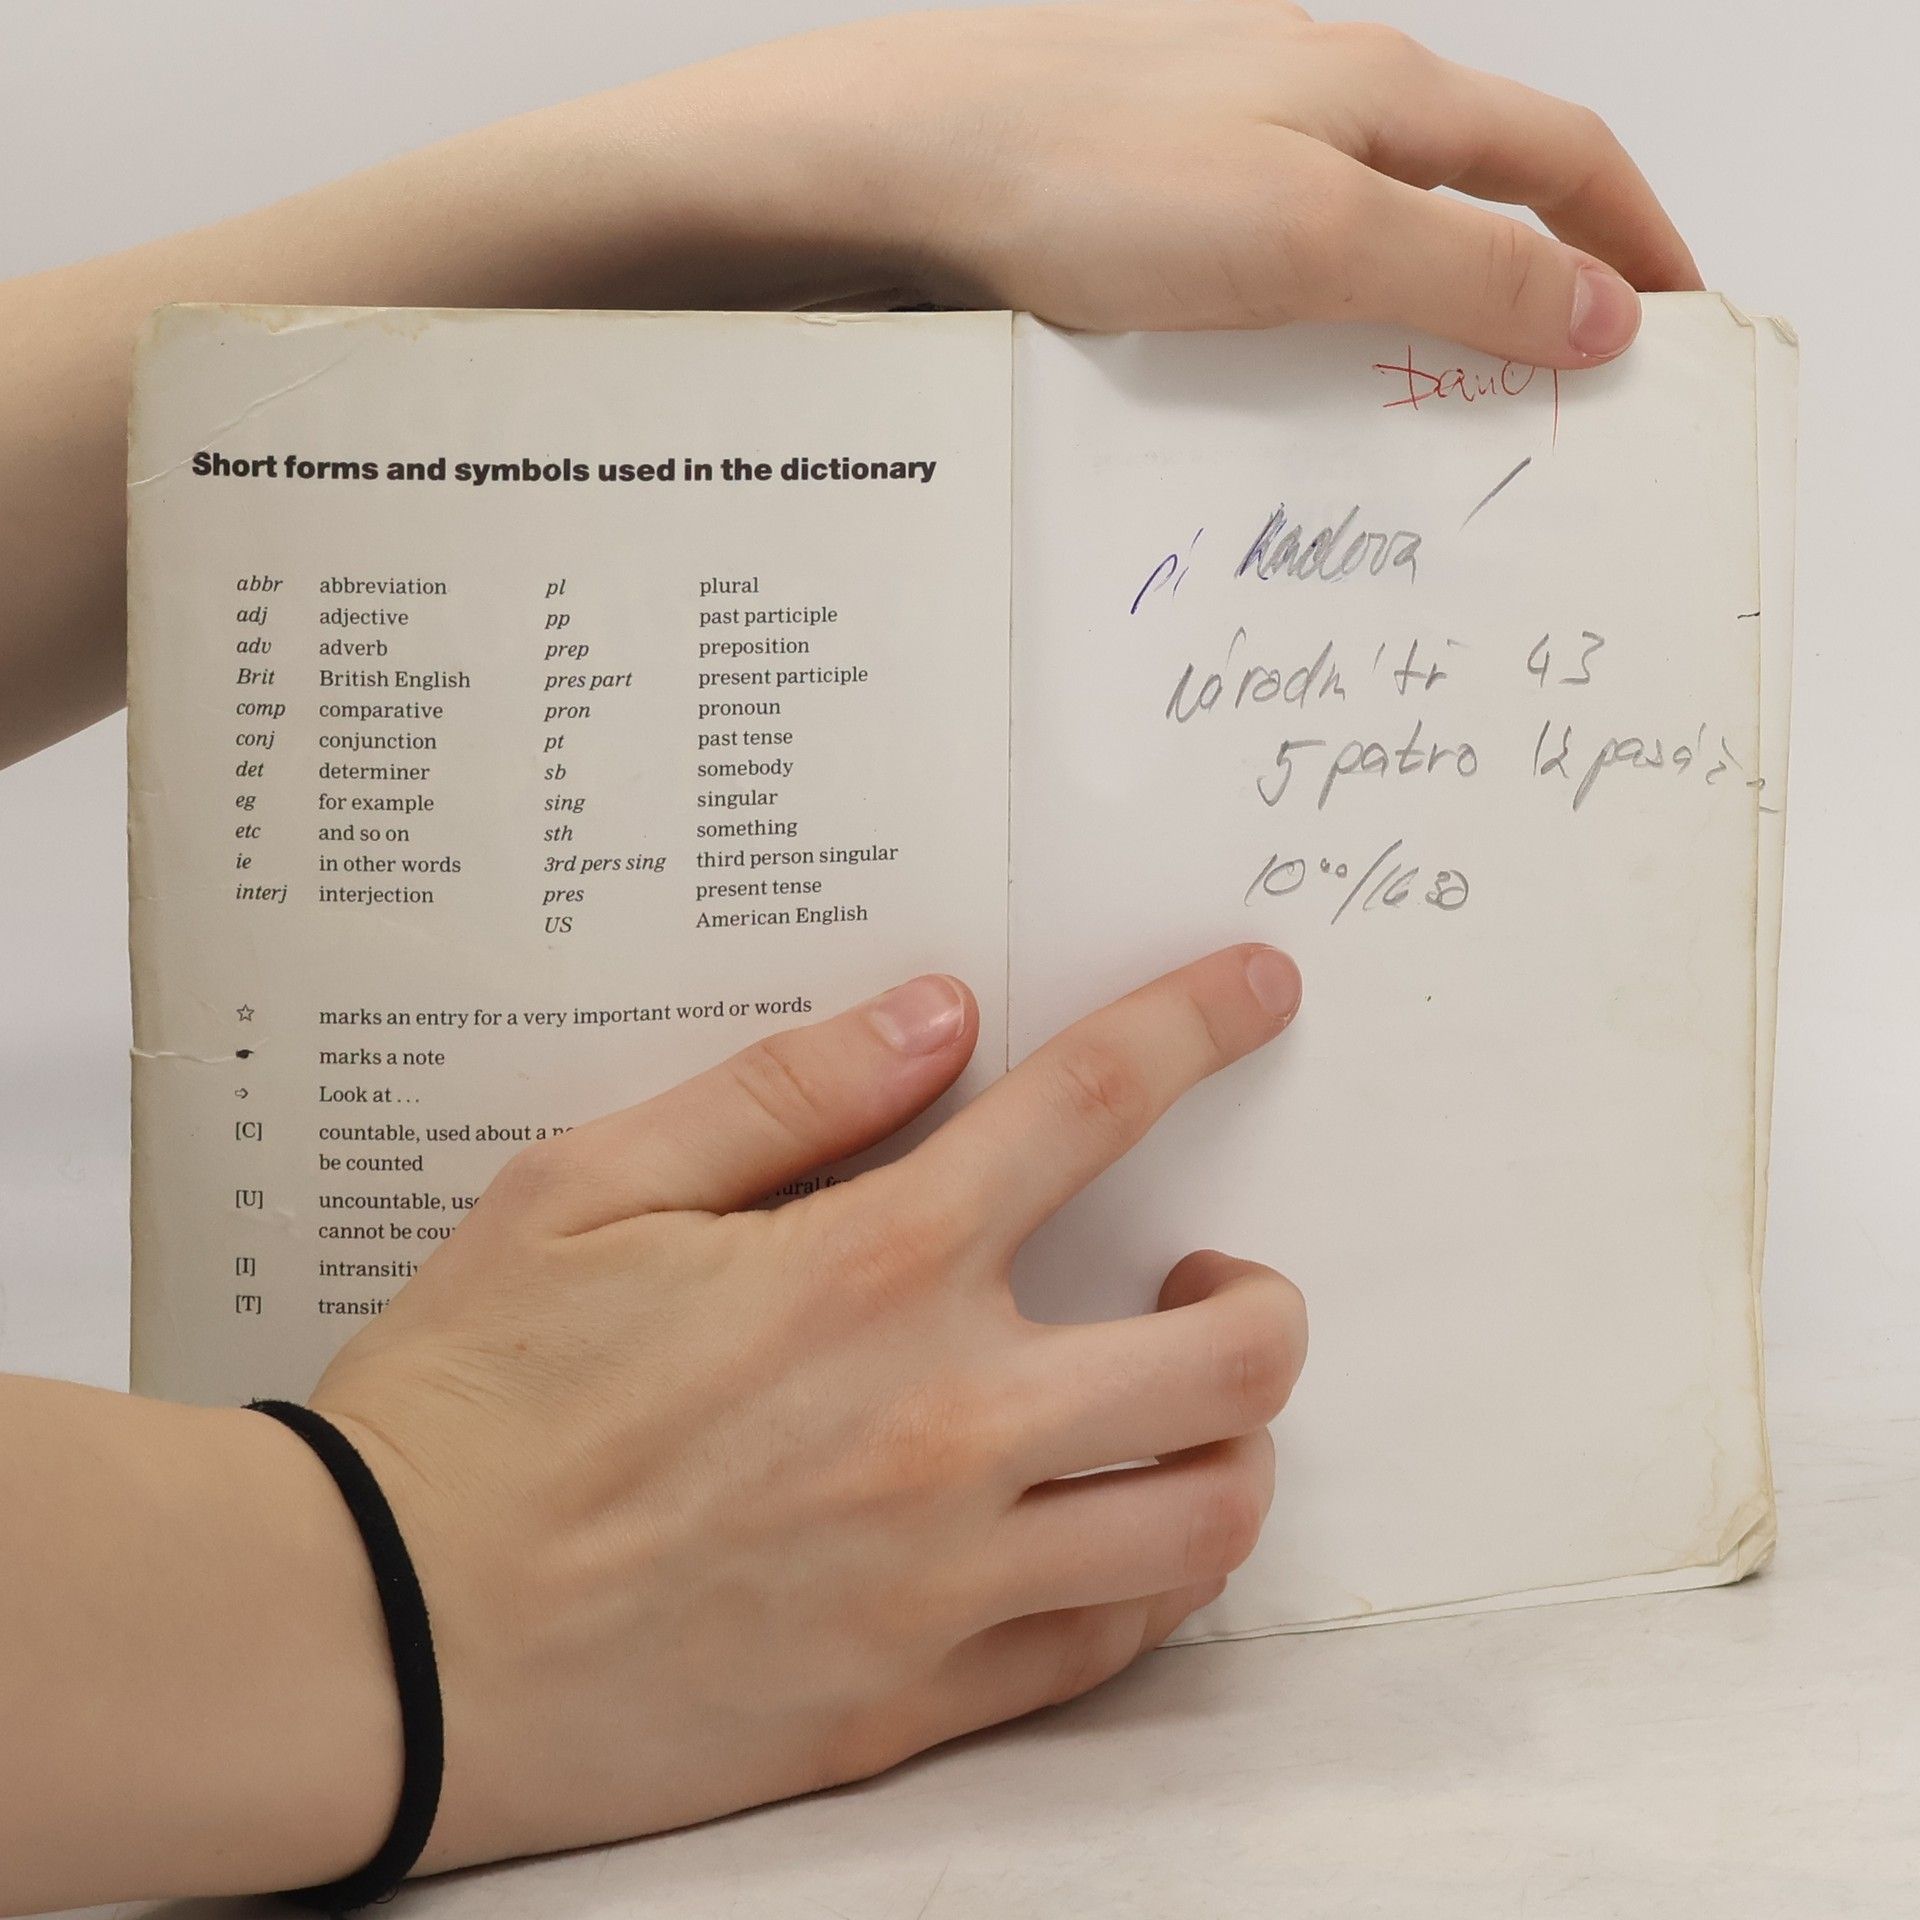 Short forms and symbols used in the dictionary
abbr abbreviation pl plural
adj adjective pp past participle
adv adverb prep preposition
Brit British English pres part present participle
comp comparative pron pronoun
conj conjunction pt past tense
det determiner sb somebody
eg for example sing singular
etc and so on sth something
ie in other words 3rd pers sing third person singular
interj interjection pres present tense
US American English
☆ marks an entry for a very important word or words
☛ marks a note
➩ Look at ...
[C] countable, used about a
be counted
[U] uncountable,
cannot be
[I]
[T]
pí
Národní tř 43
5 patro
10 00/16 30